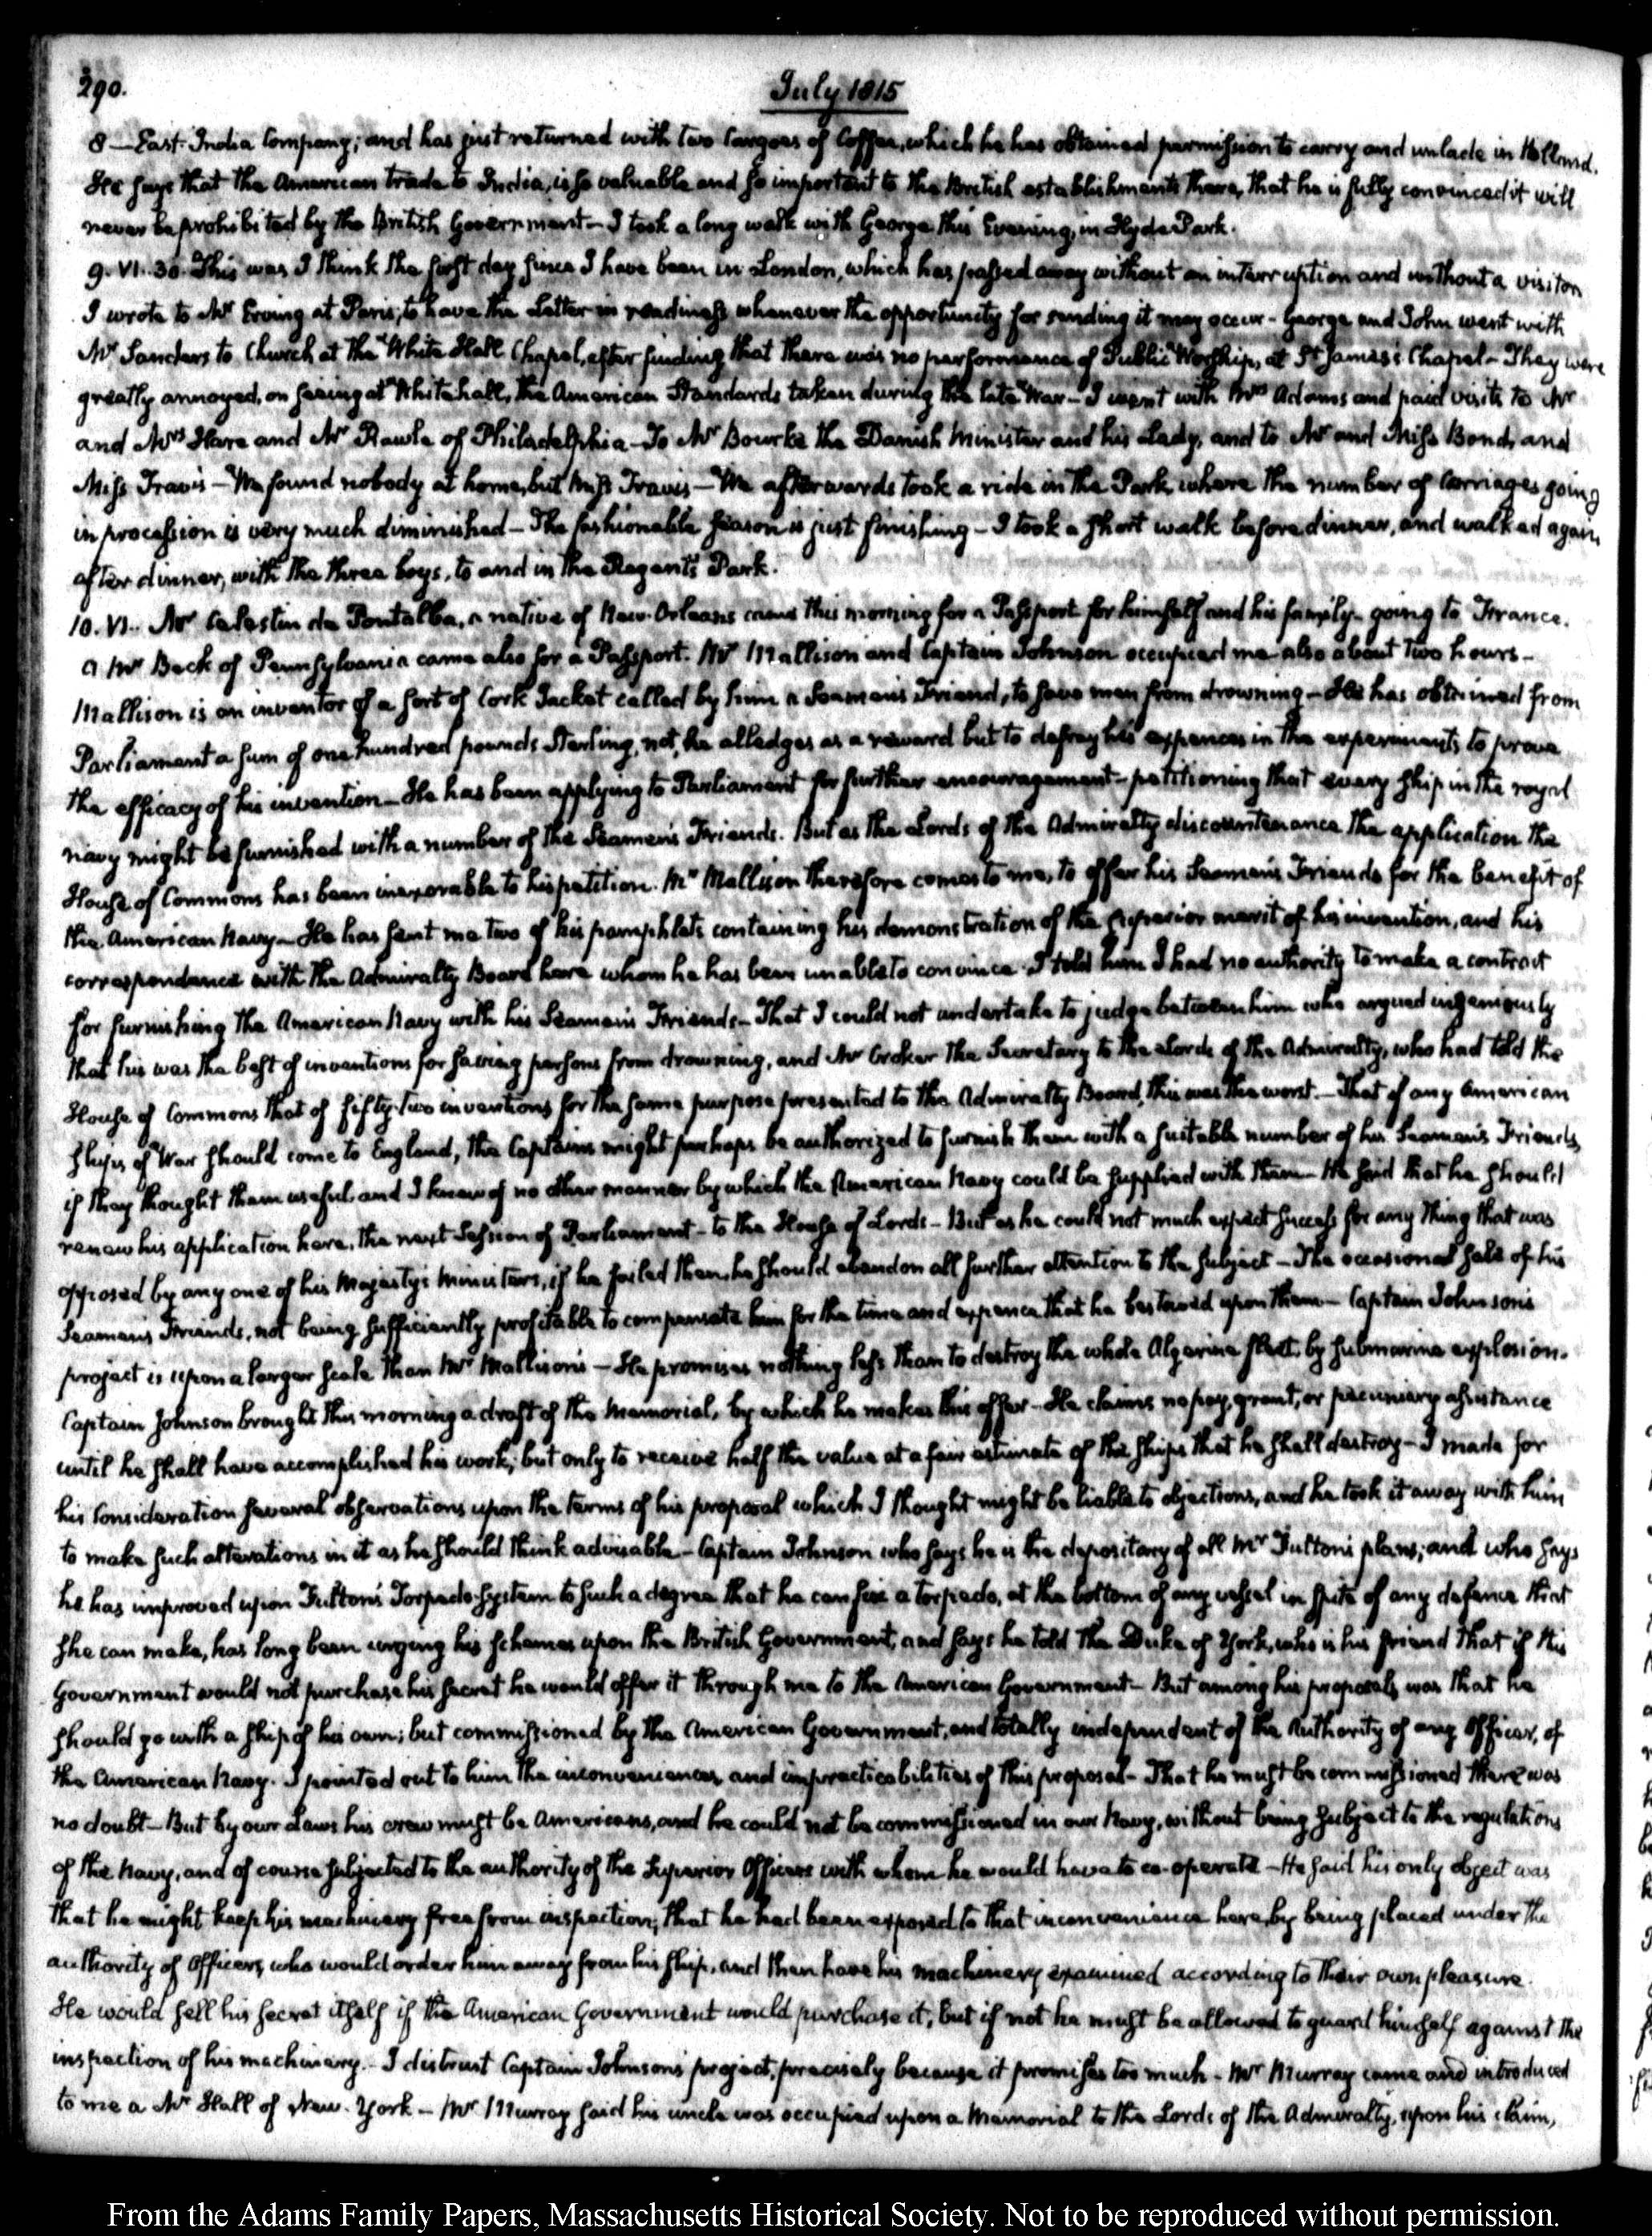 290.
July 1815
8 — East-India Company; and has just returned with two Cargoes of Coffee, which he has obtained permission to carry and unlade in Holland.
He says that the American trade to India, is so valuable and so important to the British establishments there, that he is fully convinced it will
never be prohibited by the British Government — I took a long walk with George this Evening, in Hyde Park.
9. VI..30. This was I think the first day since I have been in London, which has passed away without an interruption and without a visitor
I wrote to Mr Erving at Paris, to have the Letter in readiness whenever the opportunity for sending it may occur — George and John went with
Mr Sanders to Church at the White Hall Chapel, after finding that there was no performance of Public Worship, at St James's Chapel — They were
greatly annoyed, on seeing at Whitehall, the American Standards taken during the late War — I went with Mrs Adams and paid visits to Mr
and Mrs Hare and Mr Rawle of Philadelphia — To Mr Bourke the Danish Minister and his Lady, and to Mr and Miss Bond, and
Miss Travis — We found nobody at home, but Miss Travis — We afterwards took a ride in the Park, where the number of Carriages going
in procession is very much diminished — The fashionable season is just finishing — I took a short walk before dinner, and walked again
after dinner, with the three boys, to and in the Regent's Park.
10. VI.. Mr Celestin de Pontalba, a native of New-Orleans came this morning for a Passport for himself and his family — going to France.
A Mr Beck of Pennsylvania came also for a Passport. Mr Mallison and Captain Johnson occupied me also about two hours —
Mallison is an inventor of a sort of Cork Jacket called by him a Seaman's Friend, to save men from drowning — He has obtained from
Parliament a sum of one hundred pounds Sterling, not, he alledges as a reward but to defray his expences in the experiments to prove
the efficacy of his invention — He has been applying to Parliament for further encouragement — petitioning that every ship in the royal
navy might be furnished with a number of the Seamen's Friends. But as the Lords of the Admiralty discountenance the application the
House of Commons has been inexorable to his petition. Mr Mallison therefore comes to me, to offer his Seaman's Friends for the benefit of
the American Navy — He has sent me two of his pamphlets containing his demonstration of the superior merit of his invention, and his
correspondence with the Admiralty Board here whom he has been unable to convince. I told him I had no authority to make a contract
for furnishing the American Navy with his Seaman's Friends — That I could not undertake to judge between him who argued ingeniously
that his was the best of inventions for saving persons from drowning, and Mr Croker the Secretary to the Lords of the Admiralty, who had told the
House of Commons that of fifty-two inventions for the same purpose presented to the Admiralty Board, this was the worst. — That if any American
Ships of War should come to England, the Captains might perhaps be authorized to furnish them with a suitable number of his Seaman's Friends,
if they thought them useful, and I knew of no other manner by which the American Navy could be supplied with them — He said that he should
renew his application here, the next Session of Parliament — to the House of Lords — But as he could not much expect success for any thing that was
opposed by any one of his Majesty's Ministers, if he failed then, he should abandon all further attention to the subject — The occasional sale of his
Seaman's Friends, not being sufficiently profitable to compensate him for the time and expence that he bestowed upon them — Captain Johnson's
project is upon a larger scale than Mr Mallison's — He promises nothing less than to destroy the whole Algerine fleet by submarine explosion.
Captain Johnson brought this morning a draft of the Memorial, by which he makes this offer — He claims no pay, grant, or pecuniary assistance
until he shall have accomplished his work; but only to receive half the value at a fair estimate of the ships that he shall destroy — I made for
his Consideration several observations upon the terms of his proposal which I thought might be liable to objections, and he took it away with him
to make such alterations in it as he should think advisable — Captain Johnson who says he is the depositary of all Mr Fulton's plans; and who says
he has improved upon Fulton's Torpedo system to such a degree that he can fix a torpedo, at the bottom of any vessel in spite of any defence that
she can make, has long been urging his schemes upon the British Government, and says he told the Duke of York, who is his friend that if this
Government would not purchase his secret he would offer it through me to the American Government — But among his proposals was that he
should go with a ship of his own; but commissioned by the American Government, and totally independent of the Authority of any Officer, of
the American Navy. I pointed out to him the inconveniences, and impracticabilities of this proposal — That he must be commissioned there was
no doubt — But by our Laws his crew must be Americans, and he could not be commissioned in our Navy, without being subject to the regulations
of the Navy, and of course subjected to the authority of the Superior Officers with whom he would have to co-operate — He said his only object was
that he might keep his machinery free from inspection; that he had been exposed to that inconvenience here, by being placed under the
authority of Officers, who would order him away from his ship, and then have his machinery examined according to their own pleasure.
He would sell his secret itself if the American Government would purchase it; but if not he must be allowed to guard himself against the
inspection of his machinery. — I distrust Captain Johnson's project, precisely because it promises too much — Mr Murray came and introduced
to me a Mr Hall of New-York — Mr Murray said his uncle was occupied upon a Memorial to the Lords of the Admiralty, upon his claim,
From the Adams Family Papers, Massachusetts Historical Society. Not to be reproduced without permission.